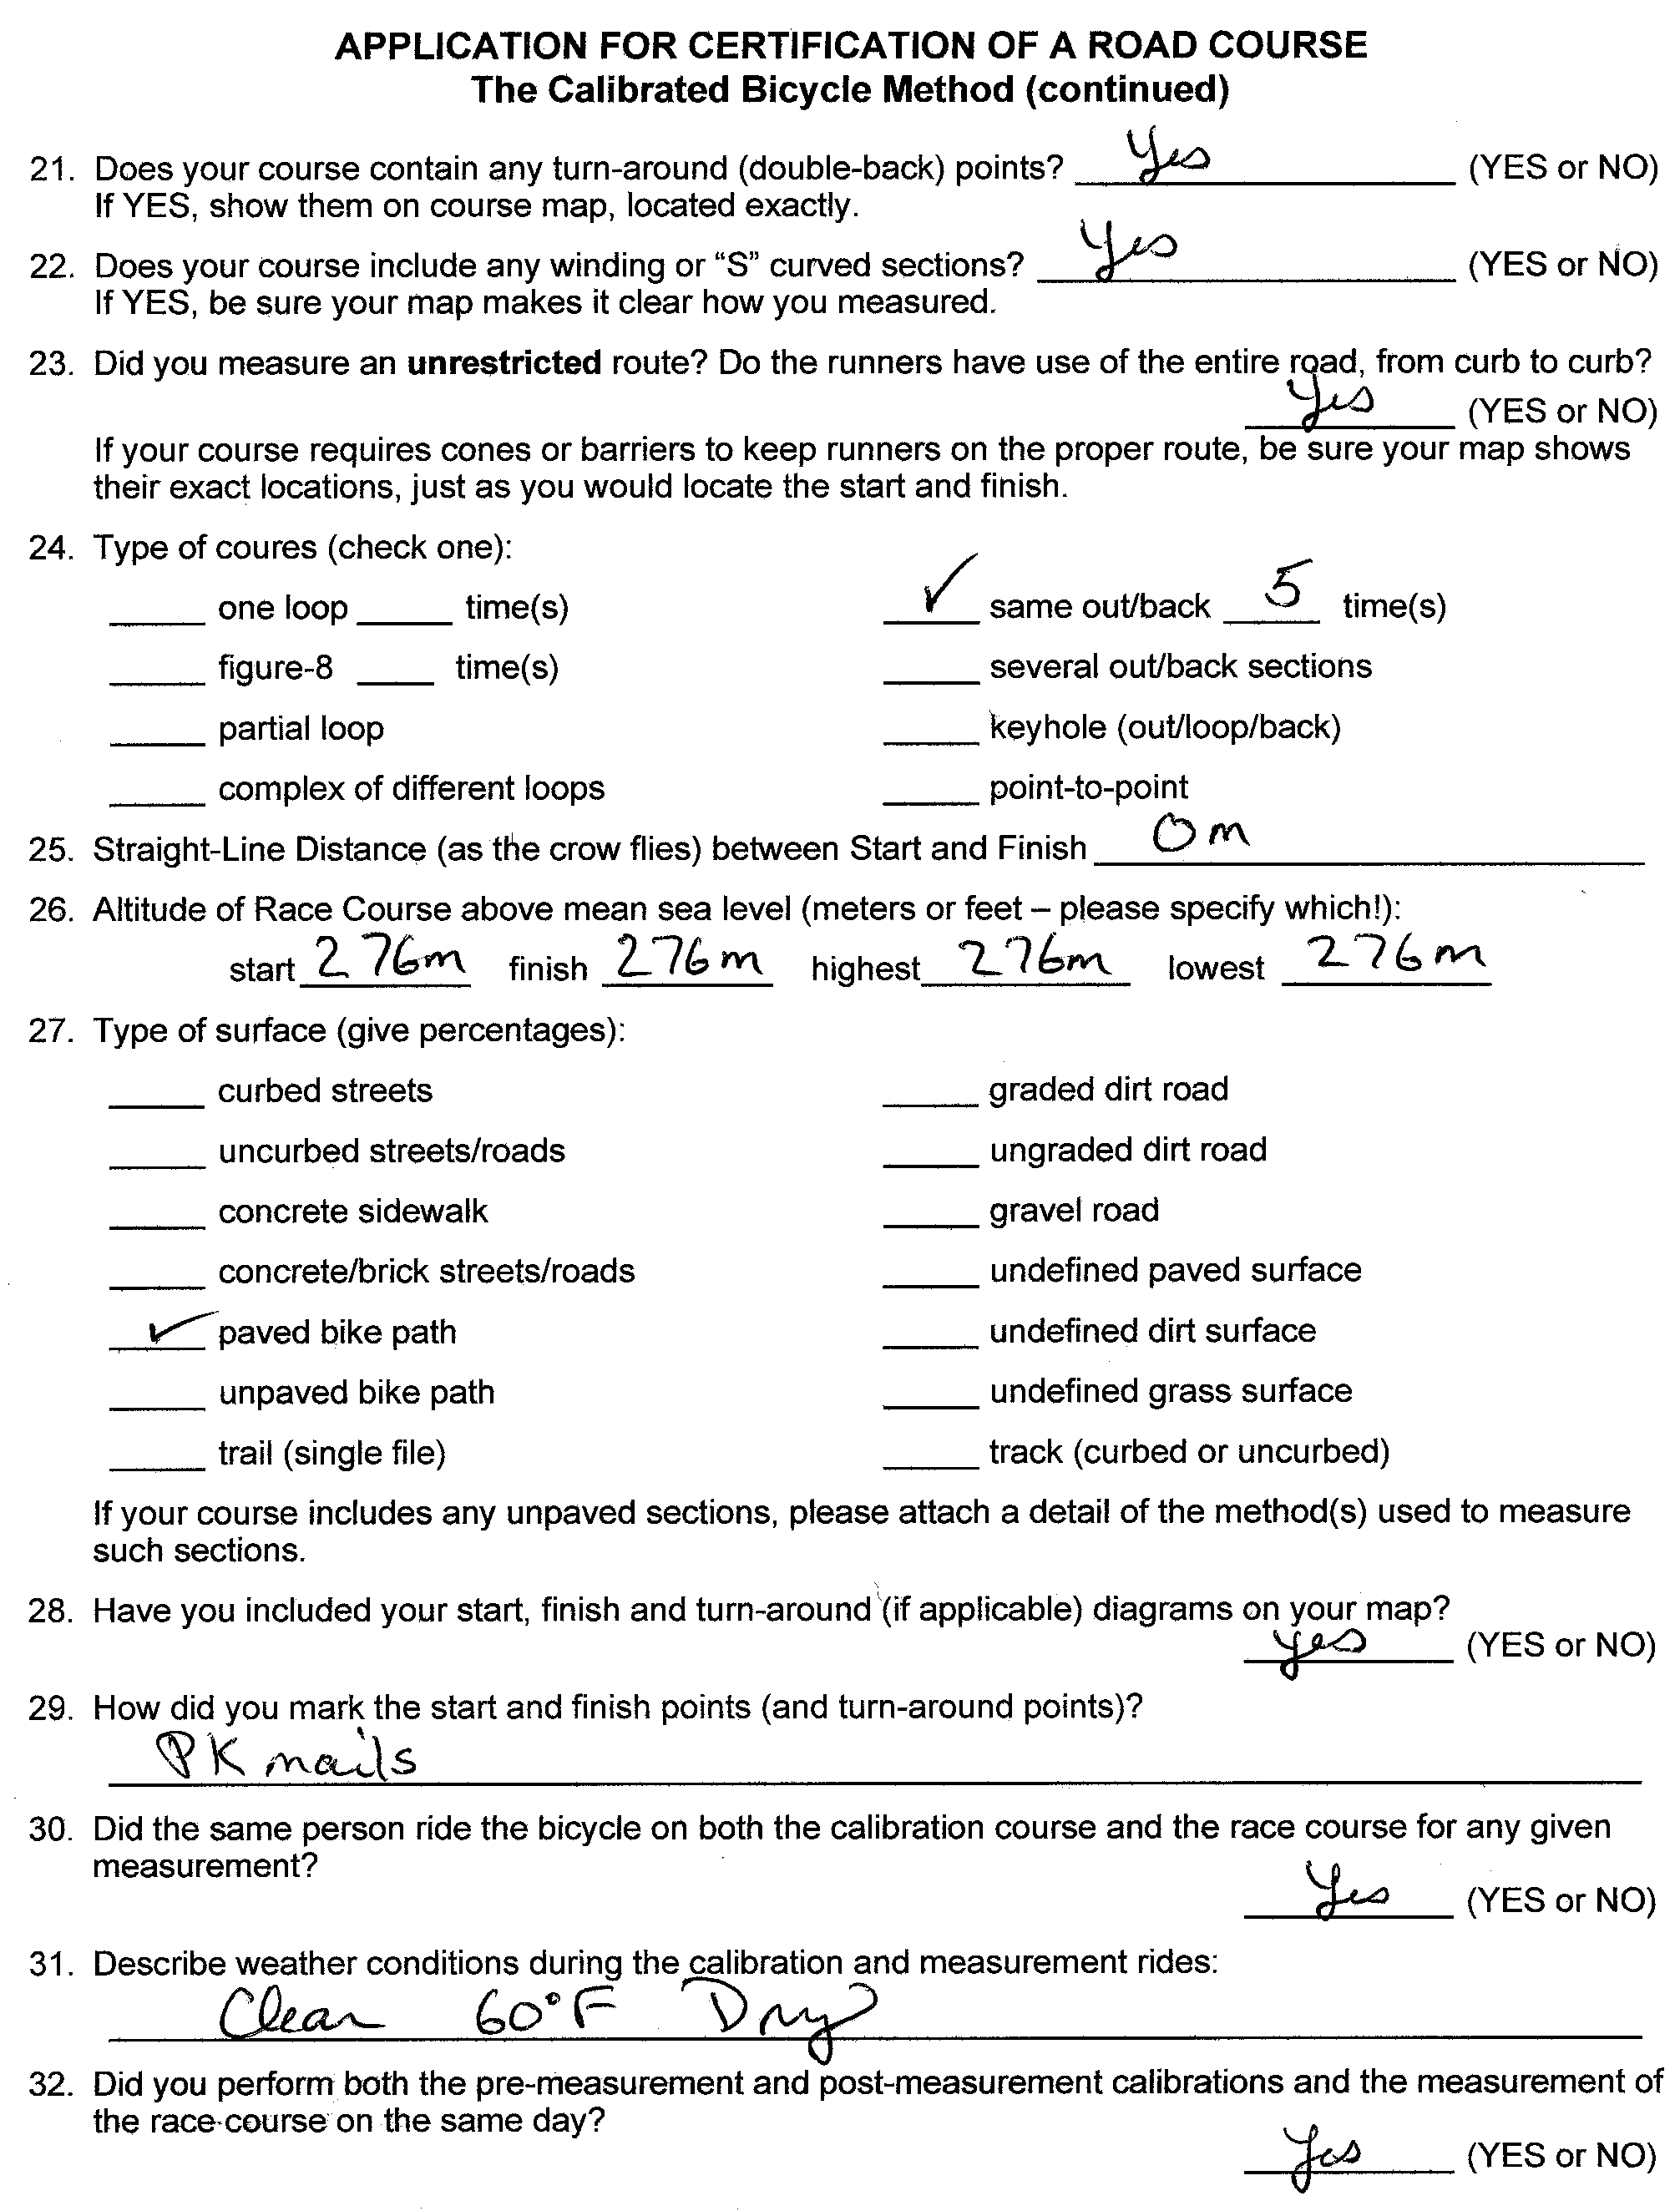 APPLICATION FOR CERTIFICATION OF A ROAD COURSE
The Calibrated Bicycle Method (continued)
21. Does your course contain any turn-around (double-back) points? Yes (YES or NO)
If YES, show them on course map, located exactly.
22. Does your course include any winding or “S” curved sections? Yes (YES or NO)
If YES, be sure your map makes it clear how you measured.
23. Did you measure an unrestricted route? Do the runners have use of the entire road, from curb to curb?
Yes (YES or NO)
If your course requires cones or barriers to keep runners on the proper route, be sure your map shows
their exact locations, just as you would locate the start and finish.
24. Type of coures (check one):
_____ one loop _____ time(s) ✓ same out/back 5 time(s)
_____ figure-8 ____ time(s) _____ several out/back sections
_____ partial loop _____ keyhole (out/loop/back)
_____ complex of different loops _____ point-to-point
25. Straight-Line Distance (as the crow flies) between Start and Finish 0 m
26. Altitude of Race Course above mean sea level (meters or feet – please specify which!):
start 276m finish 276m highest 276m lowest 276m
27. Type of surface (give percentages):
_____ curbed streets _____ graded dirt road
_____ uncurbed streets/roads _____ ungraded dirt road
_____ concrete sidewalk _____ gravel road
_____ concrete/brick streets/roads _____ undefined paved surface
✓ paved bike path _____ undefined dirt surface
_____ unpaved bike path _____ undefined grass surface
_____ trail (single file) _____ track (curbed or uncurbed)
If your course includes any unpaved sections, please attach a detail of the method(s) used to measure
such sections.
28. Have you included your start, finish and turn-around (if applicable) diagrams on your map?
yes (YES or NO)
29. How did you mark the start and finish points (and turn-around points)?
PK nails
30. Did the same person ride the bicycle on both the calibration course and the race course for any given
measurement?
Yes (YES or NO)
31. Describe weather conditions during the calibration and measurement rides:
Clear 60°F Dry
32. Did you perform both the pre-measurement and post-measurement calibrations and the measurement of
the race course on the same day?
Yes (YES or NO)